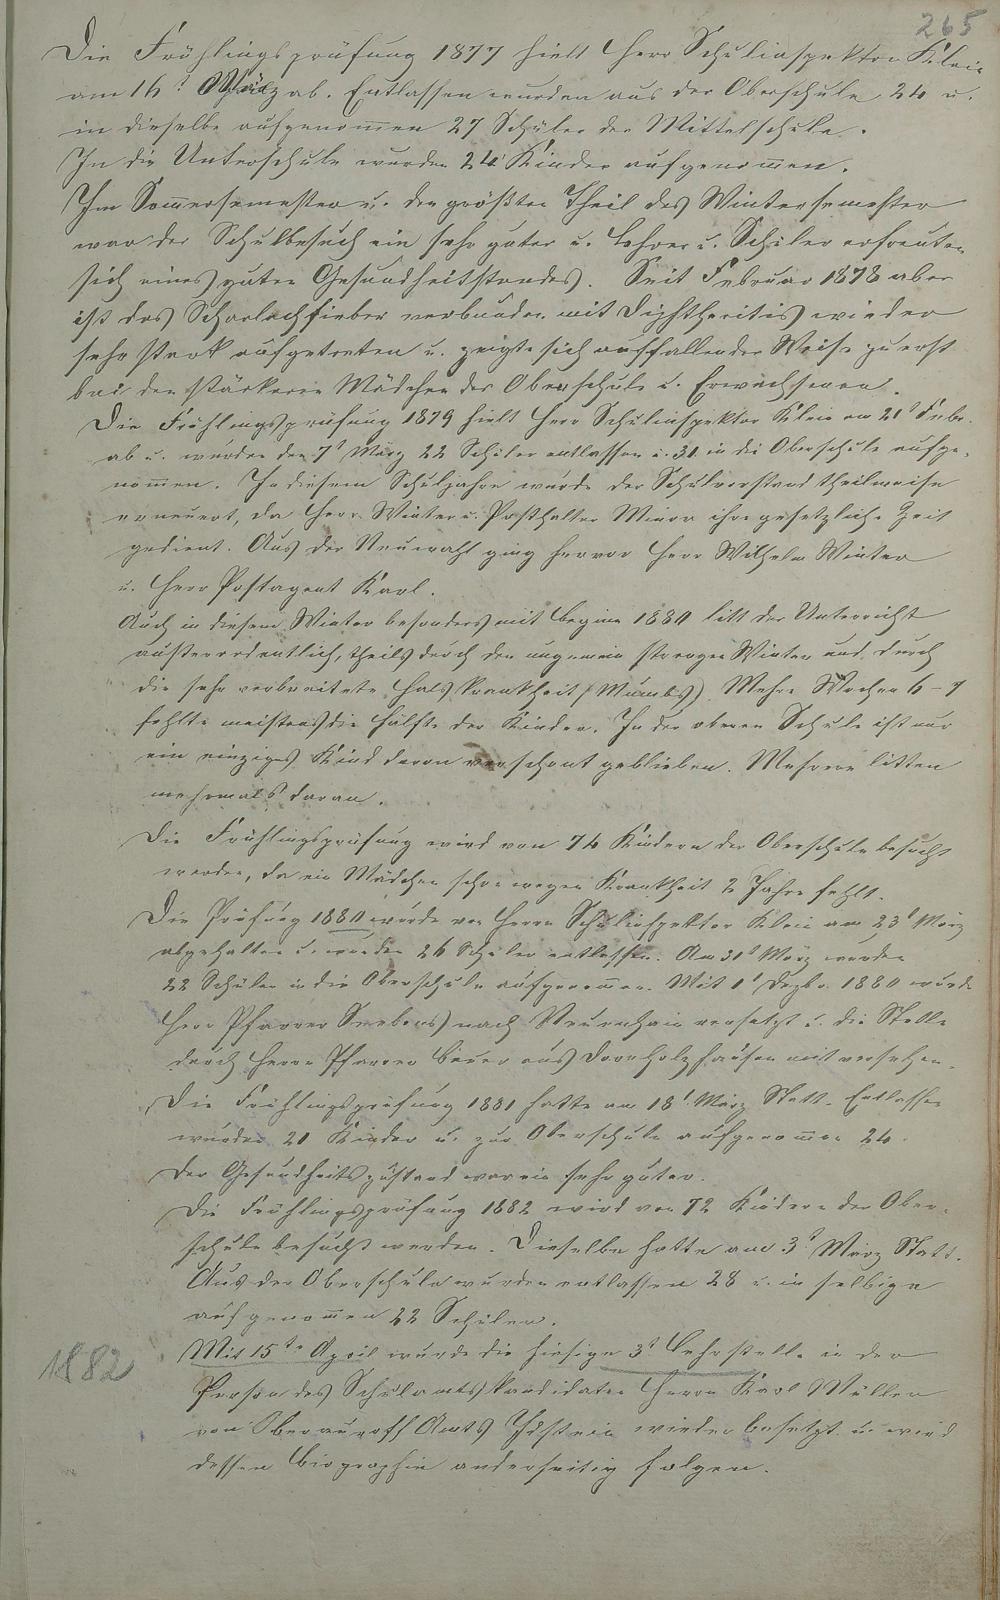 265
Die Frühlingsprüfung 1877 hielt Herr Schulinspektor Klein
am 16t März ab. Entlassen wurden aus der Oberschule 24 u.
in dieselbe aufgenom̅en 27 Schüler der Mittelschule.
In die Unterschule wurden 24 Kinder aufgenom̅en.
Im Som̅ersemester u. den größten Theil des Wintersemester
war der Schulbesuch ein sehr guter u. Lehrer u. Schüler erfreuten
sich eines guten Gesundheitstandes. Seit Februar 1878 aber
ist das Scharlachfieber verbunden mit Diphtheritis wieder
sehr stark aufgetreten u. zeigte sich auffallender Weise zu erst
bei den stärkeren Mädchen der Oberschule u. Erwachsenen.
Die Frühlingsprüfung 1879 hielt Herr Schulinspektor Klein am 21t Febr.
ab u. wurden den 7t März 22 Schüler entlassen u. 31 in die Oberschule aufge-
nom̅en. In diesem Schuljahre wurde der Schulvorstand theilweise
erneuert, da Herr Winter u. Posthalter Minor ihre gesetzliche Zeit
gedient. Aus der Neuwahl ging hervor Herr Wilhelm Winter
u. Herr Postagent Karl.
Auch in diesem Winter besonders mit Beginn 1880 litt der Unterricht
außerordentlich, theils durch den ungemein strengen Winter und durch
die sehr verbreitete Halskrankheit (Mumbs). Mehre Wochen 6-7
fehlte meistens die Hälfte der Kinder. In der oberen Schule ist nur
ein einziges Kind davon verschont geblieben. Mehrere litten
mehrmals daran.
Die Frühlingsprüfung wird von 74 Kindern der Oberschule besucht
werden, da ein Mädchen schon wegen Krankheit 2 Jahre fehlt.
Die Prüfung 1880 wurde von Herrn Schulinspektor Klein am 23t März
abgehalten u. wurden 26 Schüler entlassen. Am 31t März wurden
22 Schüler in die Oberschule aufgenommen. Mit 1t Dezbr. 1880 wurde
Herr Pfarrer nach versetzt u. die Stelle
durch Herrn Pfarrer aus Dornholzhausen mit versehen.
Die Frühlingsprüfung 1881 hatte am 18t März Statt. Entlassen
wurden 21 Kinder u. zur Oberschule aufgenommen 24.
Der Gesundheitszustand war ein sehr guter.
Die Frühlingsprüfung 1882 wird von 72 Kindern der Ober-
schule besucht werden. Dieselbe hatte am 3t März Statt.
Aus der Oberschule wurden entlassen 28 u. in selbige
aufgenom̅en 22 Schüler.
1882
Mit 15ten April wurde die hiesige 3t Lehrstelle in der
Person des Schulamtskandidaten Herrn Karl Müller
von Oberauroff Amts Idstein wieder besetzt u. wird
dessen Biographie anderseitig folgen.